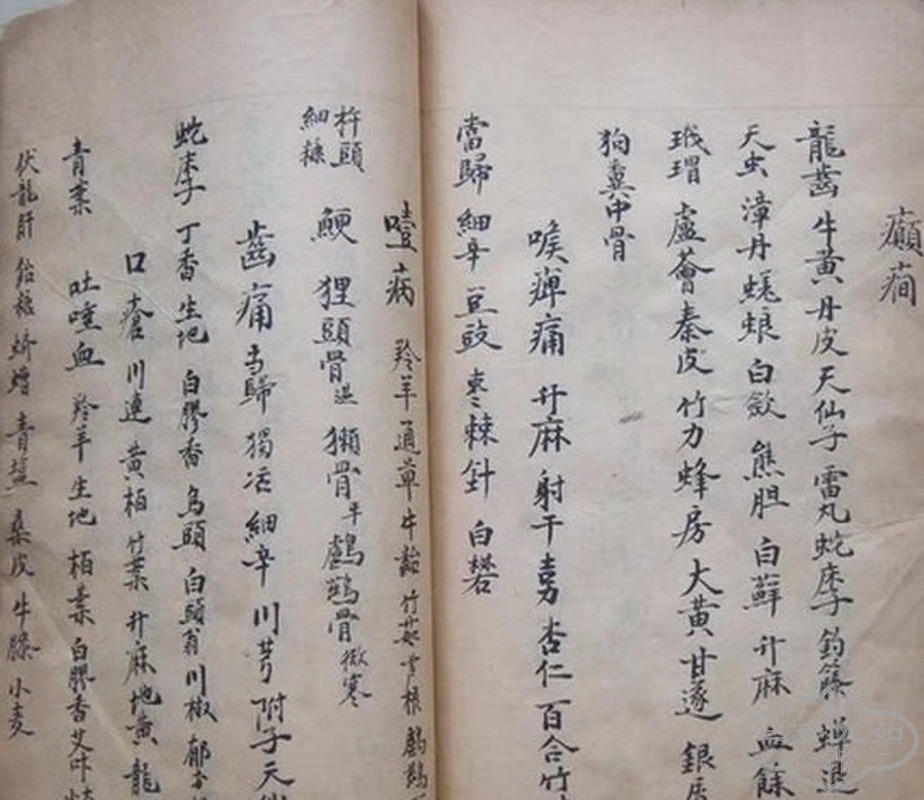 癲癎
龍齒 牛黃 丹皮 天仙子 雷丸 蛇床子 釣籐 蟬退
天虫 漳丹 蜣蜋 白歛 熊胆 白蘚 升麻 血餘
玳瑁 盧薈 秦皮 竹力 蜂房 大黃 甘遂 銀
狗糞中骨
喉痺痛 升麻 射干 杏仁 百合 竹
當歸 細辛 豆豉 枣棘針 白礬
噎病 羚羊 通草 牛齝 竹茹 鸕鷀
杵頭細糠 鯁 狸頭骨温 獺骨平 鸕鷀骨微寒
齒痛 当歸 獨活 細辛 川芎 附子 天
蛇床子 丁香 生地 白膠香 烏頭 白頭翁 川椒 郁
口瘡 川連 黃栢 竹葉 升麻 地黃 龍
青葉 吐唾血 羚羊 生地 栢葉 白膠香 艾叶
伏龍肝 飴糖 蠐螬 桑皮 牛膝 小麦